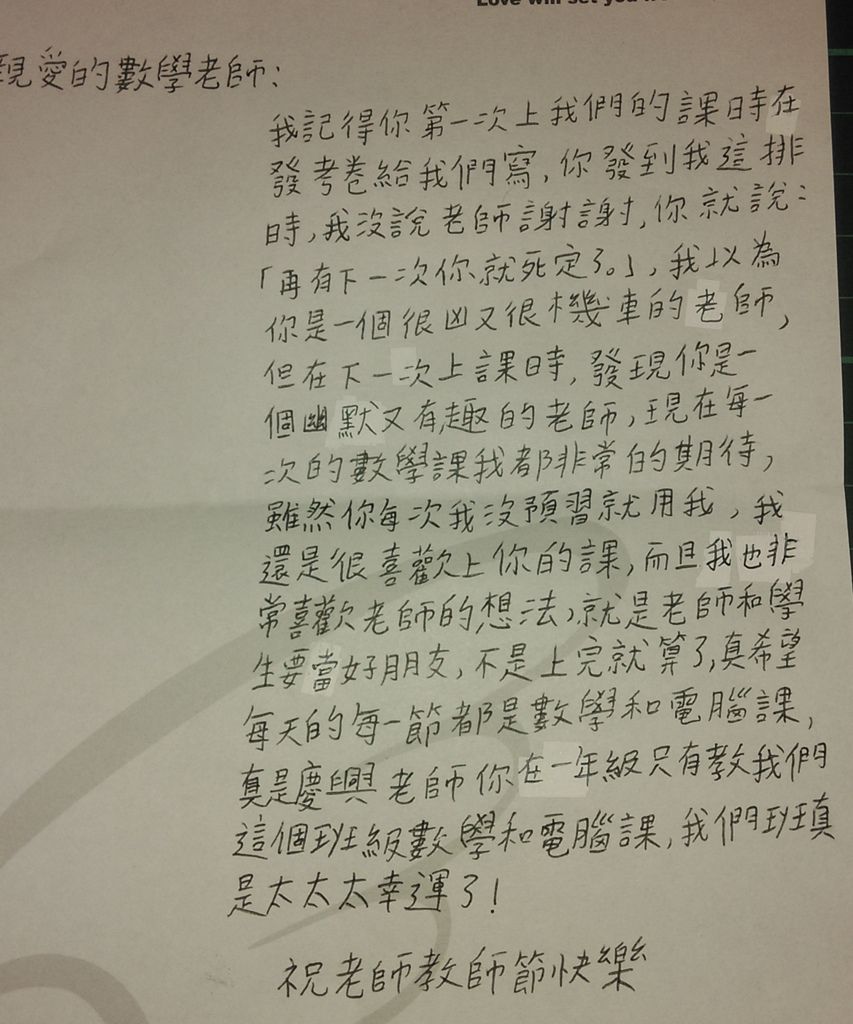 Love will set you
親愛的數學老師：
我記得你第一次上我們的課時在
發考卷給我們寫，你發到我這排
時，我沒說老師謝謝，你就說：
「再有下一次你就死定了。」，我以為
你是一個很凶又很機車的老師，
但在下一次上課時，發現你是一
個幽默又有趣的老師，現在每一
次的數學課我都非常的期待，
雖然你每次我沒預習就用我，我
還是很喜歡上你的課，而且我也非
常喜歡老師的想法，就是老師和學
生要當好朋友，不是上完就算了，真希望
每天的每一節都是數學和電腦課，
真是慶興老師你在一年級只有教我們
這個班級數學和電腦課，我們班真
是太太太幸運了！
祝老師教師節快樂